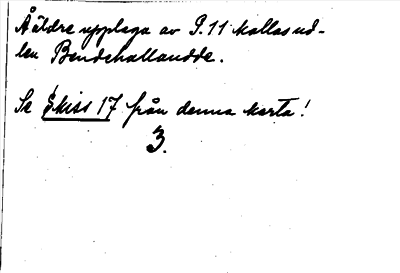 Å äldre upplaga av S. 11 kallas ud-
den Bondehallandde.
Se Skiss 17 från denna karta!
3.